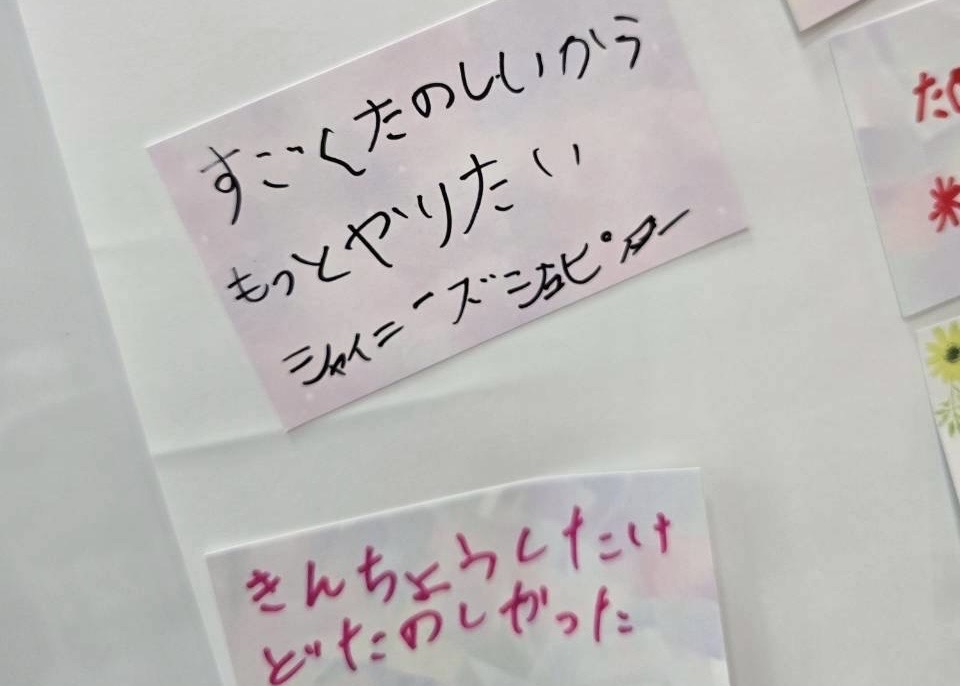 すごくたのしいから
もっとやりたい
シャイニーズジュピター
きんちょうしたけ
どたのしかった